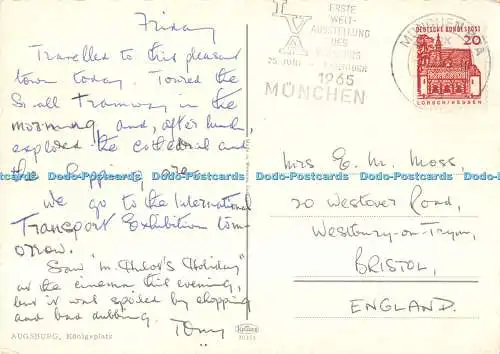 Friday
Travelled to this pleasant
town today. Toured the
small Tramway in the
morning and, after lunch,
explored the cathedral and
the shopping area.
We go to the International
Transport Exhibition tom-
orrow.
Saw "M. Hulot's Holiday"
at the cinema this evening,
but it was spoiled by chopping
and bad dubbing. Tony
AUGSBURG, Königsplatz
Krüger
ERSTE
WELT-
AUSSTELLUNG
DES
VERKEHRS
25. JUNI
1965
MÜNCHEN
DEUTSCHE BUNDESPOST
20
LORSCH/HESSEN
Mrs E. M. Moss,
20 Westover Road,
Westbury-on-Trym,
BRISTOL,
ENGLAND.
Dodo-Postcards Dodo-Postcards Dodo-Postcards Dodo-Postcards